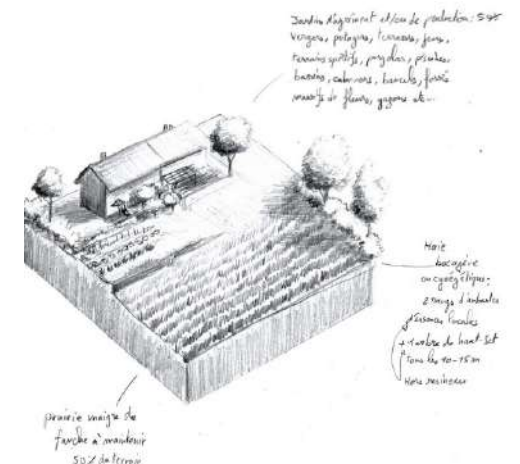 Jardins d'agrément et/ou de production : 50%
vergers, potagers, terrasses, jeux,
terrains sportifs, pergolas, piscines,
bassins, cabanons, bancels, fossés
massifs de fleurs, gazons etc...
Haie
bocagère
ou cynégétique :
2 rangs d'arbustes
d'essences locales
+ 1 arbre de haut jet
tous les 10-15m
Hors résineux
prairie maigre de
fauche à maintenir
50% du terrain